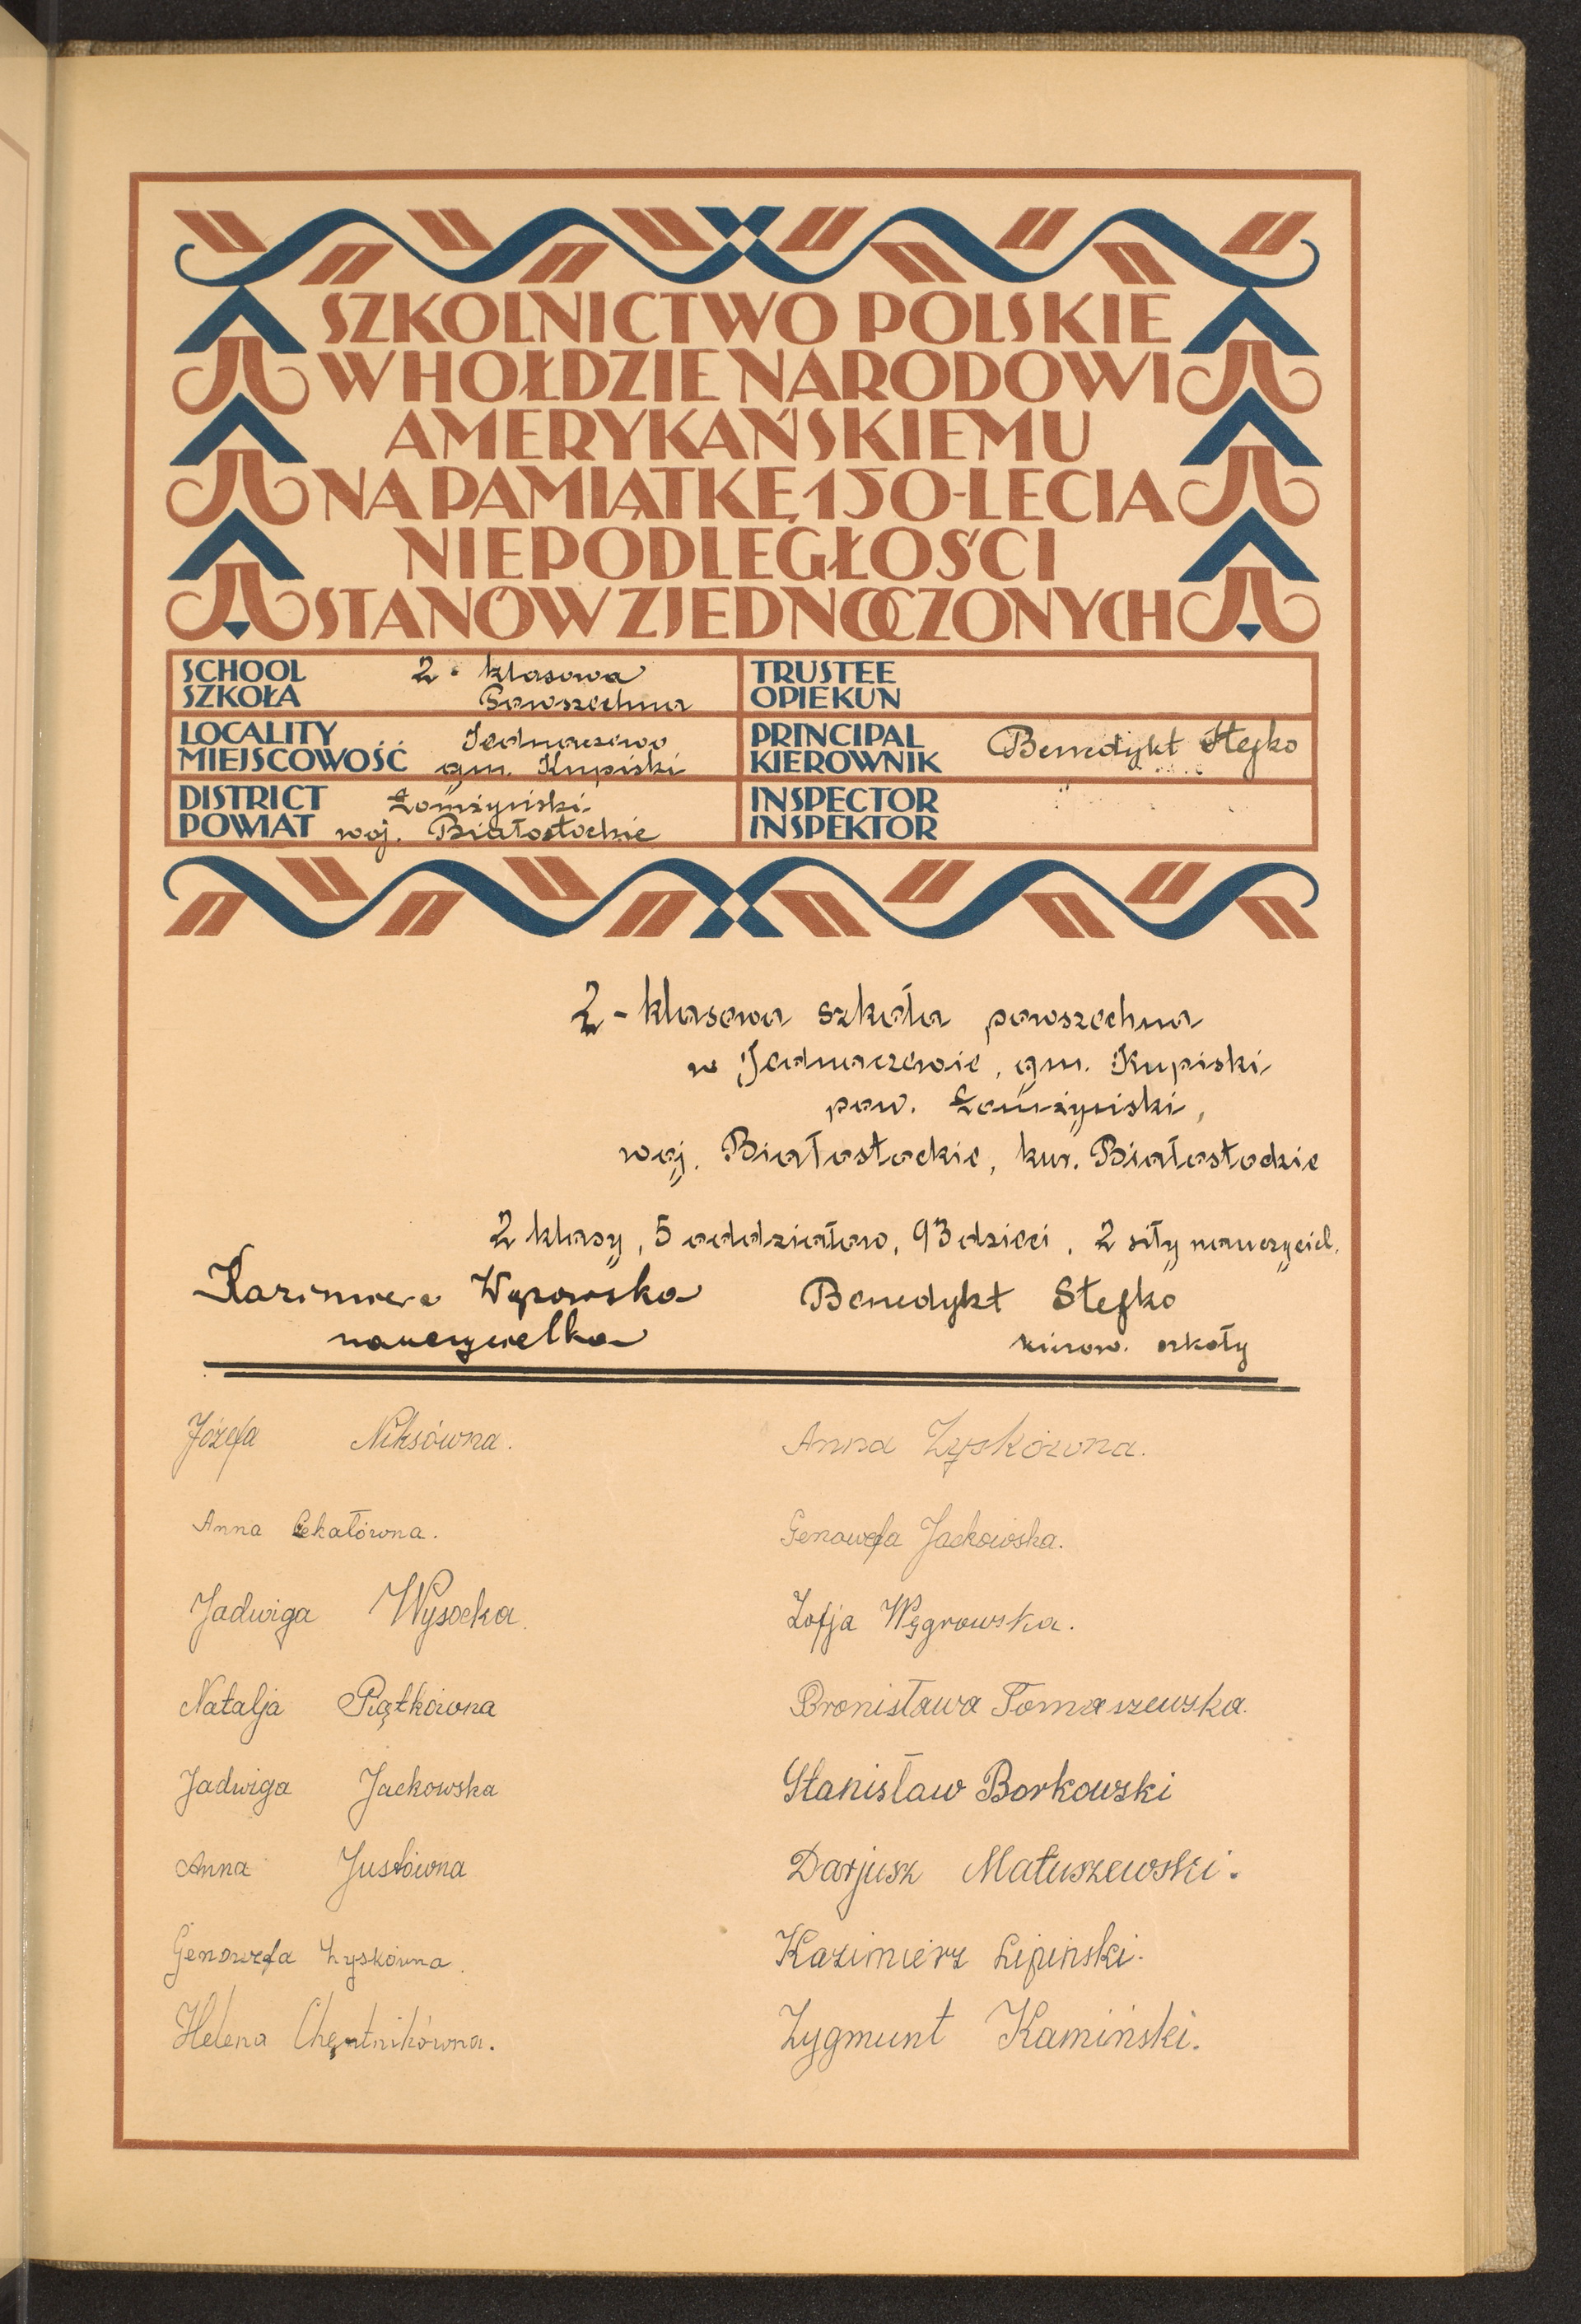 SZKOLNICTWO POLSKIE
W HOŁDZIE NARODOWI
AMERYKAŃSKIEMU
NA PAMIĄTKĘ 150-LECIA
NIEPODLEGŁOŚCI
STANÓW ZJEDNOCZONYCH
SCHOOL
SZKOŁA
2-klasowa
Powszechna
TRUSTEE
OPIEKUN
LOCALITY
MIEJSCOWOŚĆ
Jednaczewo
gm. Kupiski
PRINCIPAL
KIEROWNIK
Benedykt Stefko
DISTRICT
POWIAT
Łomżyński
woj. Białostockie
INSPECTOR
INSPEKTOR
2-klasowa szkoła powszechna
w Jednaczewie, gm. Kupiski
pow. Łomżyński,
woj. Białostockie, kur. Białostockie
2 klasy, 5 oddziałów, 93 dzieci, 2 siły nauczyciel.
Kazimiera
Benedykt Stefko
nauczycielka
kierow. szkoły
Józefa Niksówna.
Anna Zyskówna.
Anna Cekałówna.
Genowefa Jackowska.
Jadwiga Wysocka.
Zofja Węgrowska.
Natalja Piątkówna
Bronisława Tomaszewska.
Jadwiga Jackowska
Stanisław Borkowski
Anna Jusłówna
Darjusz Matuszewski.
Genowefa Zyskówna.
Kazimierz Lipiński.
Helena Chętnikówna.
Zygmunt Kamiński.